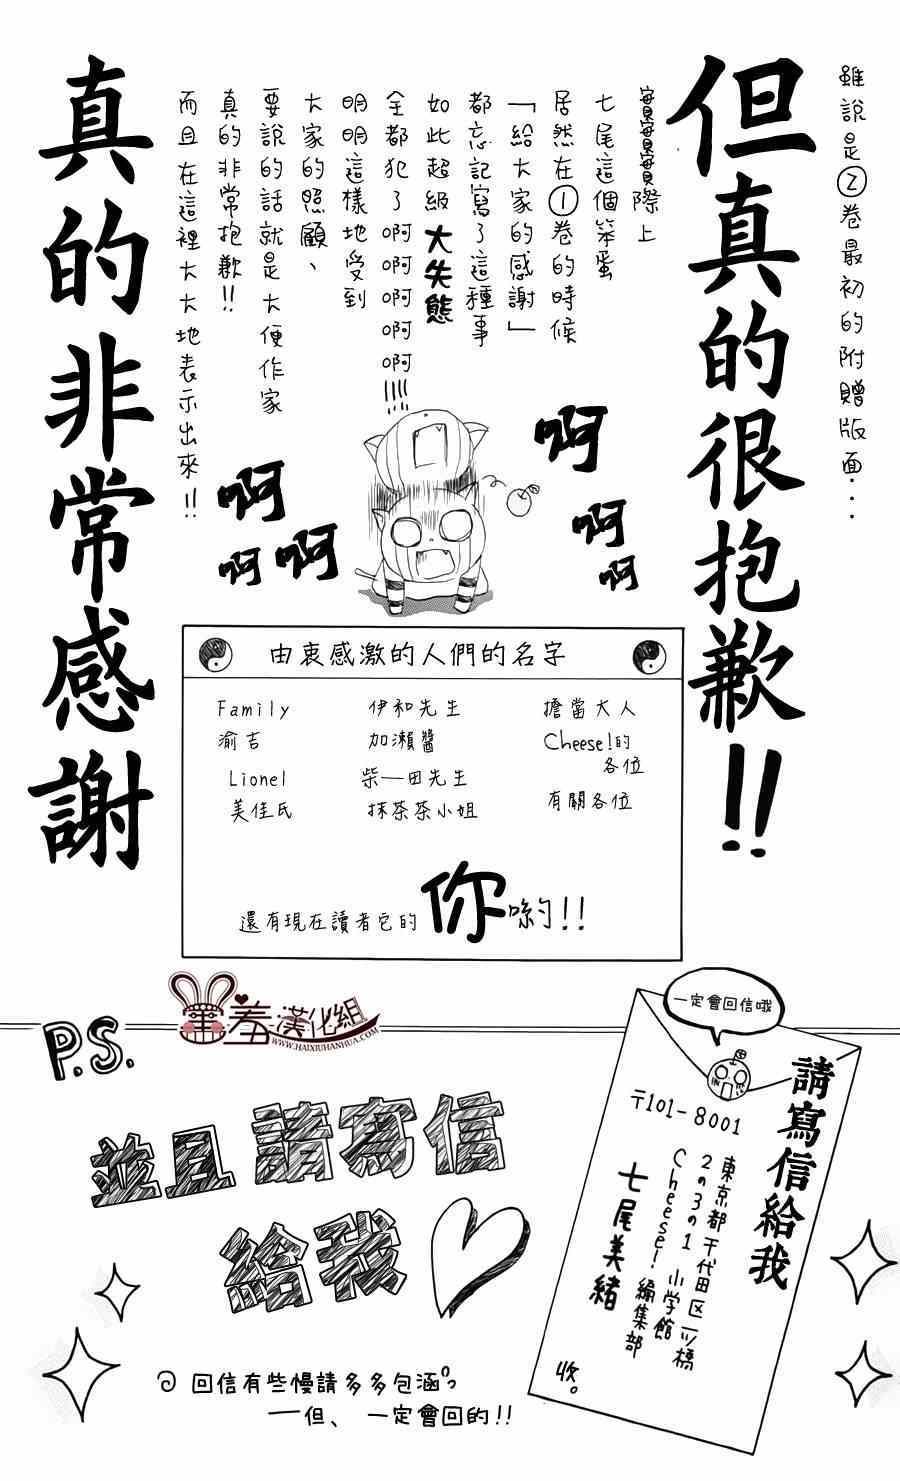 雖說是②卷最初的附贈版面...
但真的很抱歉!!
實實實際上
七尾這個笨蛋
居然在①卷的時候
「給大家的感謝」
都忘記寫了這種事
如此超級大失態
全都犯了啊啊啊啊啊!!!!
明明這樣地受到
大家的照顧、
要說的話就是大便作家
真的非常抱歉!!
而且在這裡大大地表示出來!!
真的非常感謝
啊
啊
啊
啊
啊
啊
由衷感激的人們的名字
Family 伊和先生 擔當大人
渝吉 加瀨醬 Cheese!的
各位
Lionel 柴一田先生
美佳氏 抹茶茶小姐 有關各位
還有現在讀者它的你喲!!
羞漢化組
WWW.HAIXIUHANHUA.COM
P.S.
並且請寫信
給我
回信有些慢請多多包涵。
一但、一定會回的!!
一定會回信哦
請寫信給我
〒101-8001
東京都千代田区一ツ橋
2の3の1 小学館
Cheese! 編集部
七尾美緒
收。